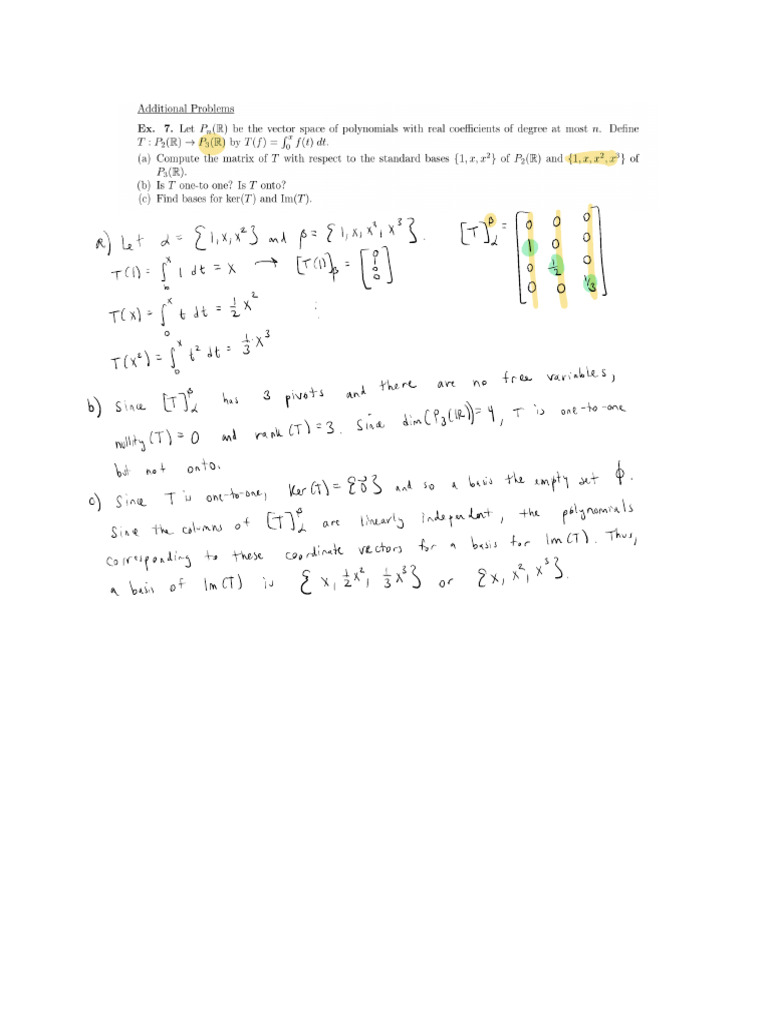 Additional Problems
Ex. 7. Let Pₙ(ℝ) be the vector space of polynomials with real coefficients of degree at most n. Define
T : P₂(ℝ) → P₃(ℝ) by T(f) = ∫₀ˣ f(t) dt.
(a) Compute the matrix of T with respect to the standard bases {1, x, x²} of P₂(ℝ) and {1, x, x², x³} of
P₃(ℝ).
(b) Is T one-to one? Is T onto?
(c) Find bases for ker(T) and Im(T).
a) Let α = {1, x, x²} and β = {1, x, x², x³}. [T]_α^β = [0 0 0; 1 0 0; 0 1/2 0; 0 0 1/3]
T(1) = ∫₀ˣ 1 dt = x → [T(1)]_β = [0 1 0 0]
T(x) = ∫₀ˣ t dt = 1/2 x² ⋮
T(x²) = ∫₀ˣ t² dt = 1/3 x³
b) Since [T]_α^β has 3 pivots and there are no free variables,
nullity(T) = 0 and rank(T) = 3. Since dim(P₃(ℝ)) = 4, T is one-to-one
but not onto.
c) Since T is one-to-one, Ker(T) = {0⃗} and so a basis the empty set ϕ.
Since the columns of [T]_α^β are linearly independent, the polynomials
corresponding to these coordinate vectors for a basis for Im(T). Thus,
a basis of Im(T) is {x, 1/2 x², 1/3 x³} or {x, x², x³}.